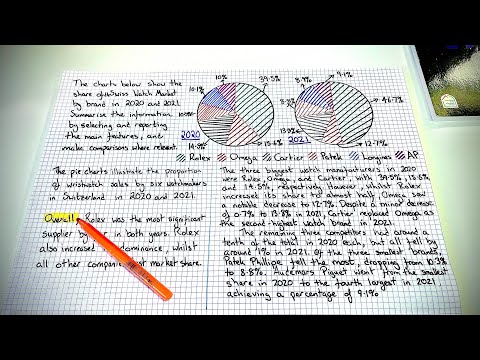 The charts below show the
share of the Swiss Watch Market
by brand in 2020 and 2021.
Summarise the information
by selecting and reporting
the main features, and
make comparisons where relevant.
10%
39.5%
10.1%
2020
14.5%
15.6%
9.1%
8.9%
46.7%
13.8%
2021
12.7%
Rolex Omega Cartier Patek Longines AP
The pie charts illustrate the proportion
of wristwatch sales by six watchmakers
in Switzerland in 2020 and 2021.
Overall, Rolex was the most significant
supplier by in both years. Rolex
also increased dominance, whilst
all other companies lost market share.
The three biggest watch manufacturers in 2020
were Rolex, Omega and Cartier, with 39.5%, 15.6%
and 14.5%, respectively. However, whilst Rolex
increased its share to almost half, Omega saw
a notable decrease to 12.7%. Despite a minor decrease
of 0.7% to 13.8% in 2021, Cartier replaced Omega as
the second-highest watch brand in 2021.
The remaining three competitors had around
a tenth of the total in 2020 each, but all fell by
around 1% in 2021. Of the three smallest brands,
Patek Phillipe fell the most, dropping from 10.3%
to 8.8%. Audemars Piguet went from the smallest
share in 2020 to the fourth largest in 2021
achieving a percentage of 9.1%